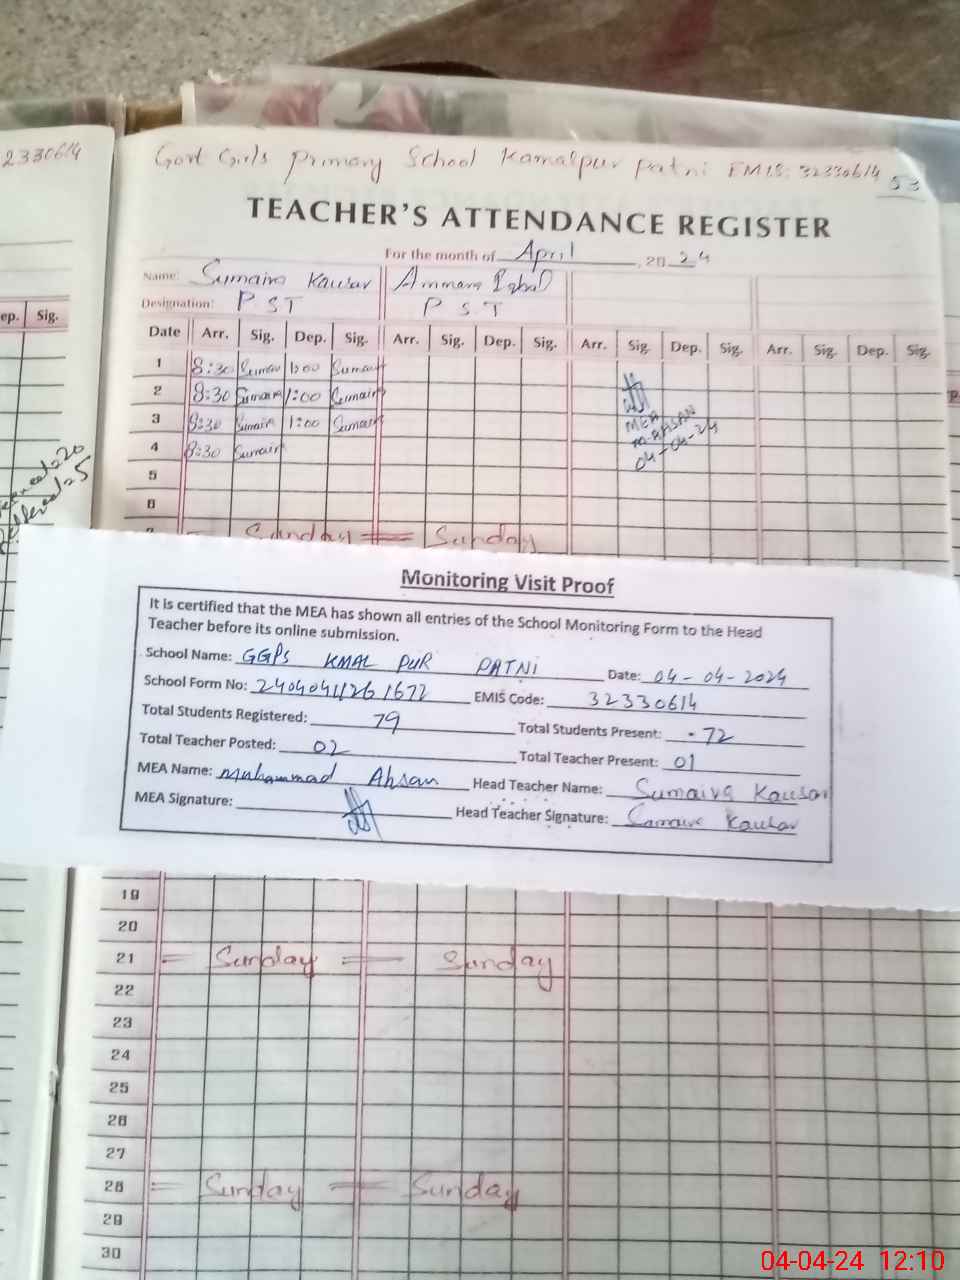 2330614
Govt Girls Primary School Kamalpur Patni EMIS: 32330614
53
TEACHER'S ATTENDANCE REGISTER
For the month of April, 2024
Name: Sumaira Kausar Ammara Iqbal
Designation: P S T P S T
ep. Sig.
Date Arr. Sig. Dep. Sig. Arr. Sig. Dep. Sig. Arr. Sig. Dep. Sig. Arr. Sig. Dep. Sig.
1 8:30 Sumair 1:00 Sumair
2 8:30 Sumair 1:00 Sumair
3 8:30 Sumair 1:00 Sumair
4 8:30 Sumair
5
6
MEA
M-AHSAN
04-04-24
Sunday = Sunday
Monitoring Visit Proof
It is certified that the MEA has shown all entries of the School Monitoring Form to the Head
Teacher before its online submission.
School Name: GGPS KMAL PUR PATNI Date: 04-04-2024
School Form No: 24040411261672 EMIS Code: 32330614
Total Students Registered: 79 Total Students Present: 72
Total Teacher Posted: 02 Total Teacher Present: 01
MEA Name: Muhammad Ahsan Head Teacher Name: Sumaira Kausar
MEA Signature: Head Teacher Signature: Sumaira Kausar
19
20
21 = Sunday = Sunday
22
23
24
25
26
27
28 = Sunday = Sunday
29
30
04-04-24 12:10